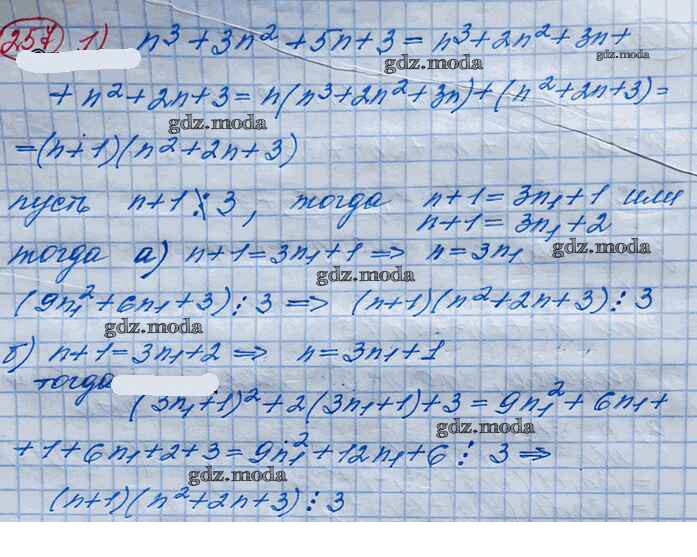 257 1) n³ + 3n² + 5n + 3 = n³ + 2n² + 3n +
gdz.moda gdz.moda
+ n² + 2n + 3 = n(n³ + 2n² + 3n) + (n² + 2n + 3) =
gdz.moda
= (n + 1)(n² + 2n + 3)
пусть n + 1 ⋮̸ 3, тогда n + 1 = 3n₁ + 1 или
n + 1 = 3n₁ + 2
тогда а) n + 1 = 3n₁ + 1 => n = 3n₁
gdz.moda gdz.moda
(9n₁² + 6n₁ + 3) ⋮ 3 => (n + 1)(n² + 2n + 3) ⋮ 3
gdz.moda
б) n + 1 = 3n₁ + 2 => n = 3n₁ + 1
тогда
(3n₁ + 1)² + 2(3n₁ + 1) + 3 = 9n₁² + 6n₁ +
gdz.moda
+ 1 + 6n₁ + 2 + 3 = 9n₁² + 12n₁ + 6 ⋮ 3 =>
gdz.moda
(n + 1)(n² + 2n + 3) ⋮ 3